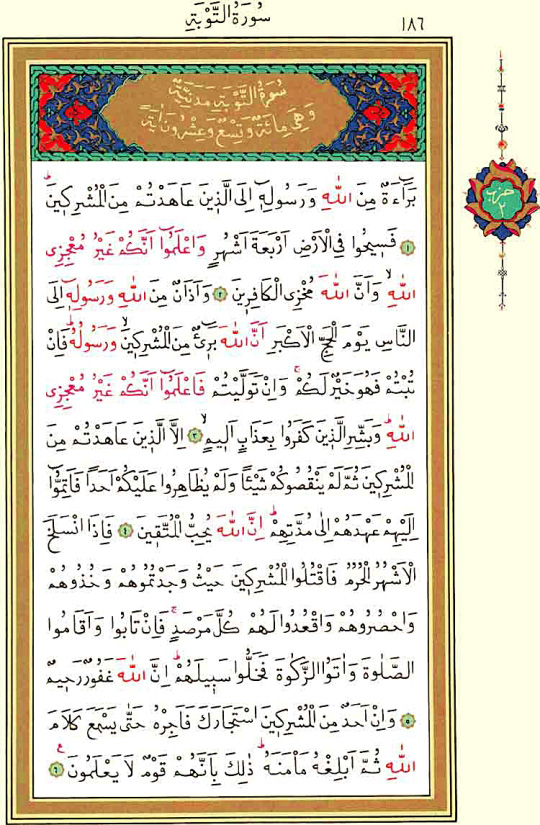 سُورَةُ التَّوْبَةِ
١٨٦
سُورَةُ التَّوْبَةِ مَدَنِيَّةٌ
وَهِيَ مِائَةٌ وَتِسْعٌ وَعِشْرُونَ اٰيَةً
حزب
٢
بَرَٓاءَةٌ مِنَ اللّٰهِ وَرَسُولِه۪ٓ اِلَى الَّذ۪ينَ عَاهَدْتُمْ مِنَ الْمُشْرِك۪ينَۜ
﴿١﴾ فَس۪يحُوا فِي الْاَرْضِ اَرْبَعَةَ اَشْهُرٍ وَاعْلَمُٓوا اَنَّكُمْ غَيْرُ مُعْجِزِي
اللّٰهِۙ وَاَنَّ اللّٰهَ مُخْزِي الْكَافِر۪ينَ ﴿٢﴾ وَاَذَانٌ مِنَ اللّٰهِ وَرَسُولِه۪ٓ اِلَى
النَّاسِ يَوْمَ الْحَجِّ الْاَكْبَرِ اَنَّ اللّٰهَ بَر۪ٓيءٌ مِنَ الْمُشْرِك۪ينَۙ وَرَسُولُهُۜ فَاِنْ
تُبْتُمْ فَهُوَ خَيْرٌ لَكُمْۚ وَاِنْ تَوَلَّيْتُمْ فَاعْلَمُٓوا اَنَّكُمْ غَيْرُ مُعْجِزِي
اللّٰهِۜ وَبَشِّرِ الَّذ۪ينَ كَفَرُوا بِعَذَابٍ اَل۪يمٍۙ ﴿٣﴾ اِلَّا الَّذ۪ينَ عَاهَدْتُمْ مِنَ
الْمُشْرِك۪ينَ ثُمَّ لَمْ يَنْقُصُوكُمْ شَيْـًٔا وَلَمْ يُظَاهِرُوا عَلَيْكُمْ اَحَدًا فَاَتِمُّٓوا
اِلَيْهِمْ عَهْدَهُمْ اِلٰى مُدَّتِهِمْۜ اِنَّ اللّٰهَ يُحِبُّ الْمُتَّق۪ينَ ﴿٤﴾ فَاِذَا انْسَلَخَ
الْاَشْهُرُ الْحُرُمُ فَاقْتُلُوا الْمُشْرِك۪ينَ حَيْثُ وَجَدْتُمُوهُمْ وَخُذُوهُمْ
وَاحْصُرُوهُمْ وَاقْعُدُوا لَهُمْ كُلَّ مَرْصَدٍۚ فَاِنْ تَابُوا وَاَقَامُوا
الصَّلٰوةَ وَاٰتَوُا الزَّكٰوةَ فَخَلُّوا سَب۪يلَهُمْۜ اِنَّ اللّٰهَ غَفُورٌ رَح۪يمٌ
﴿٥﴾ وَاِنْ اَحَدٌ مِنَ الْمُشْرِك۪ينَ اسْتَجَارَكَ فَاَجِرْهُ حَتّٰى يَسْمَعَ كَلَامَ
اللّٰهِ ثُمَّ اَبْلِغْهُ مَأْمَنَهُۜ ذٰلِكَ بِاَنَّهُمْ قَوْمٌ لَا يَعْلَمُونَ۟ ﴿٦﴾